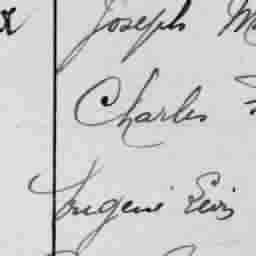 Joseph
Charles
Eugene Levis